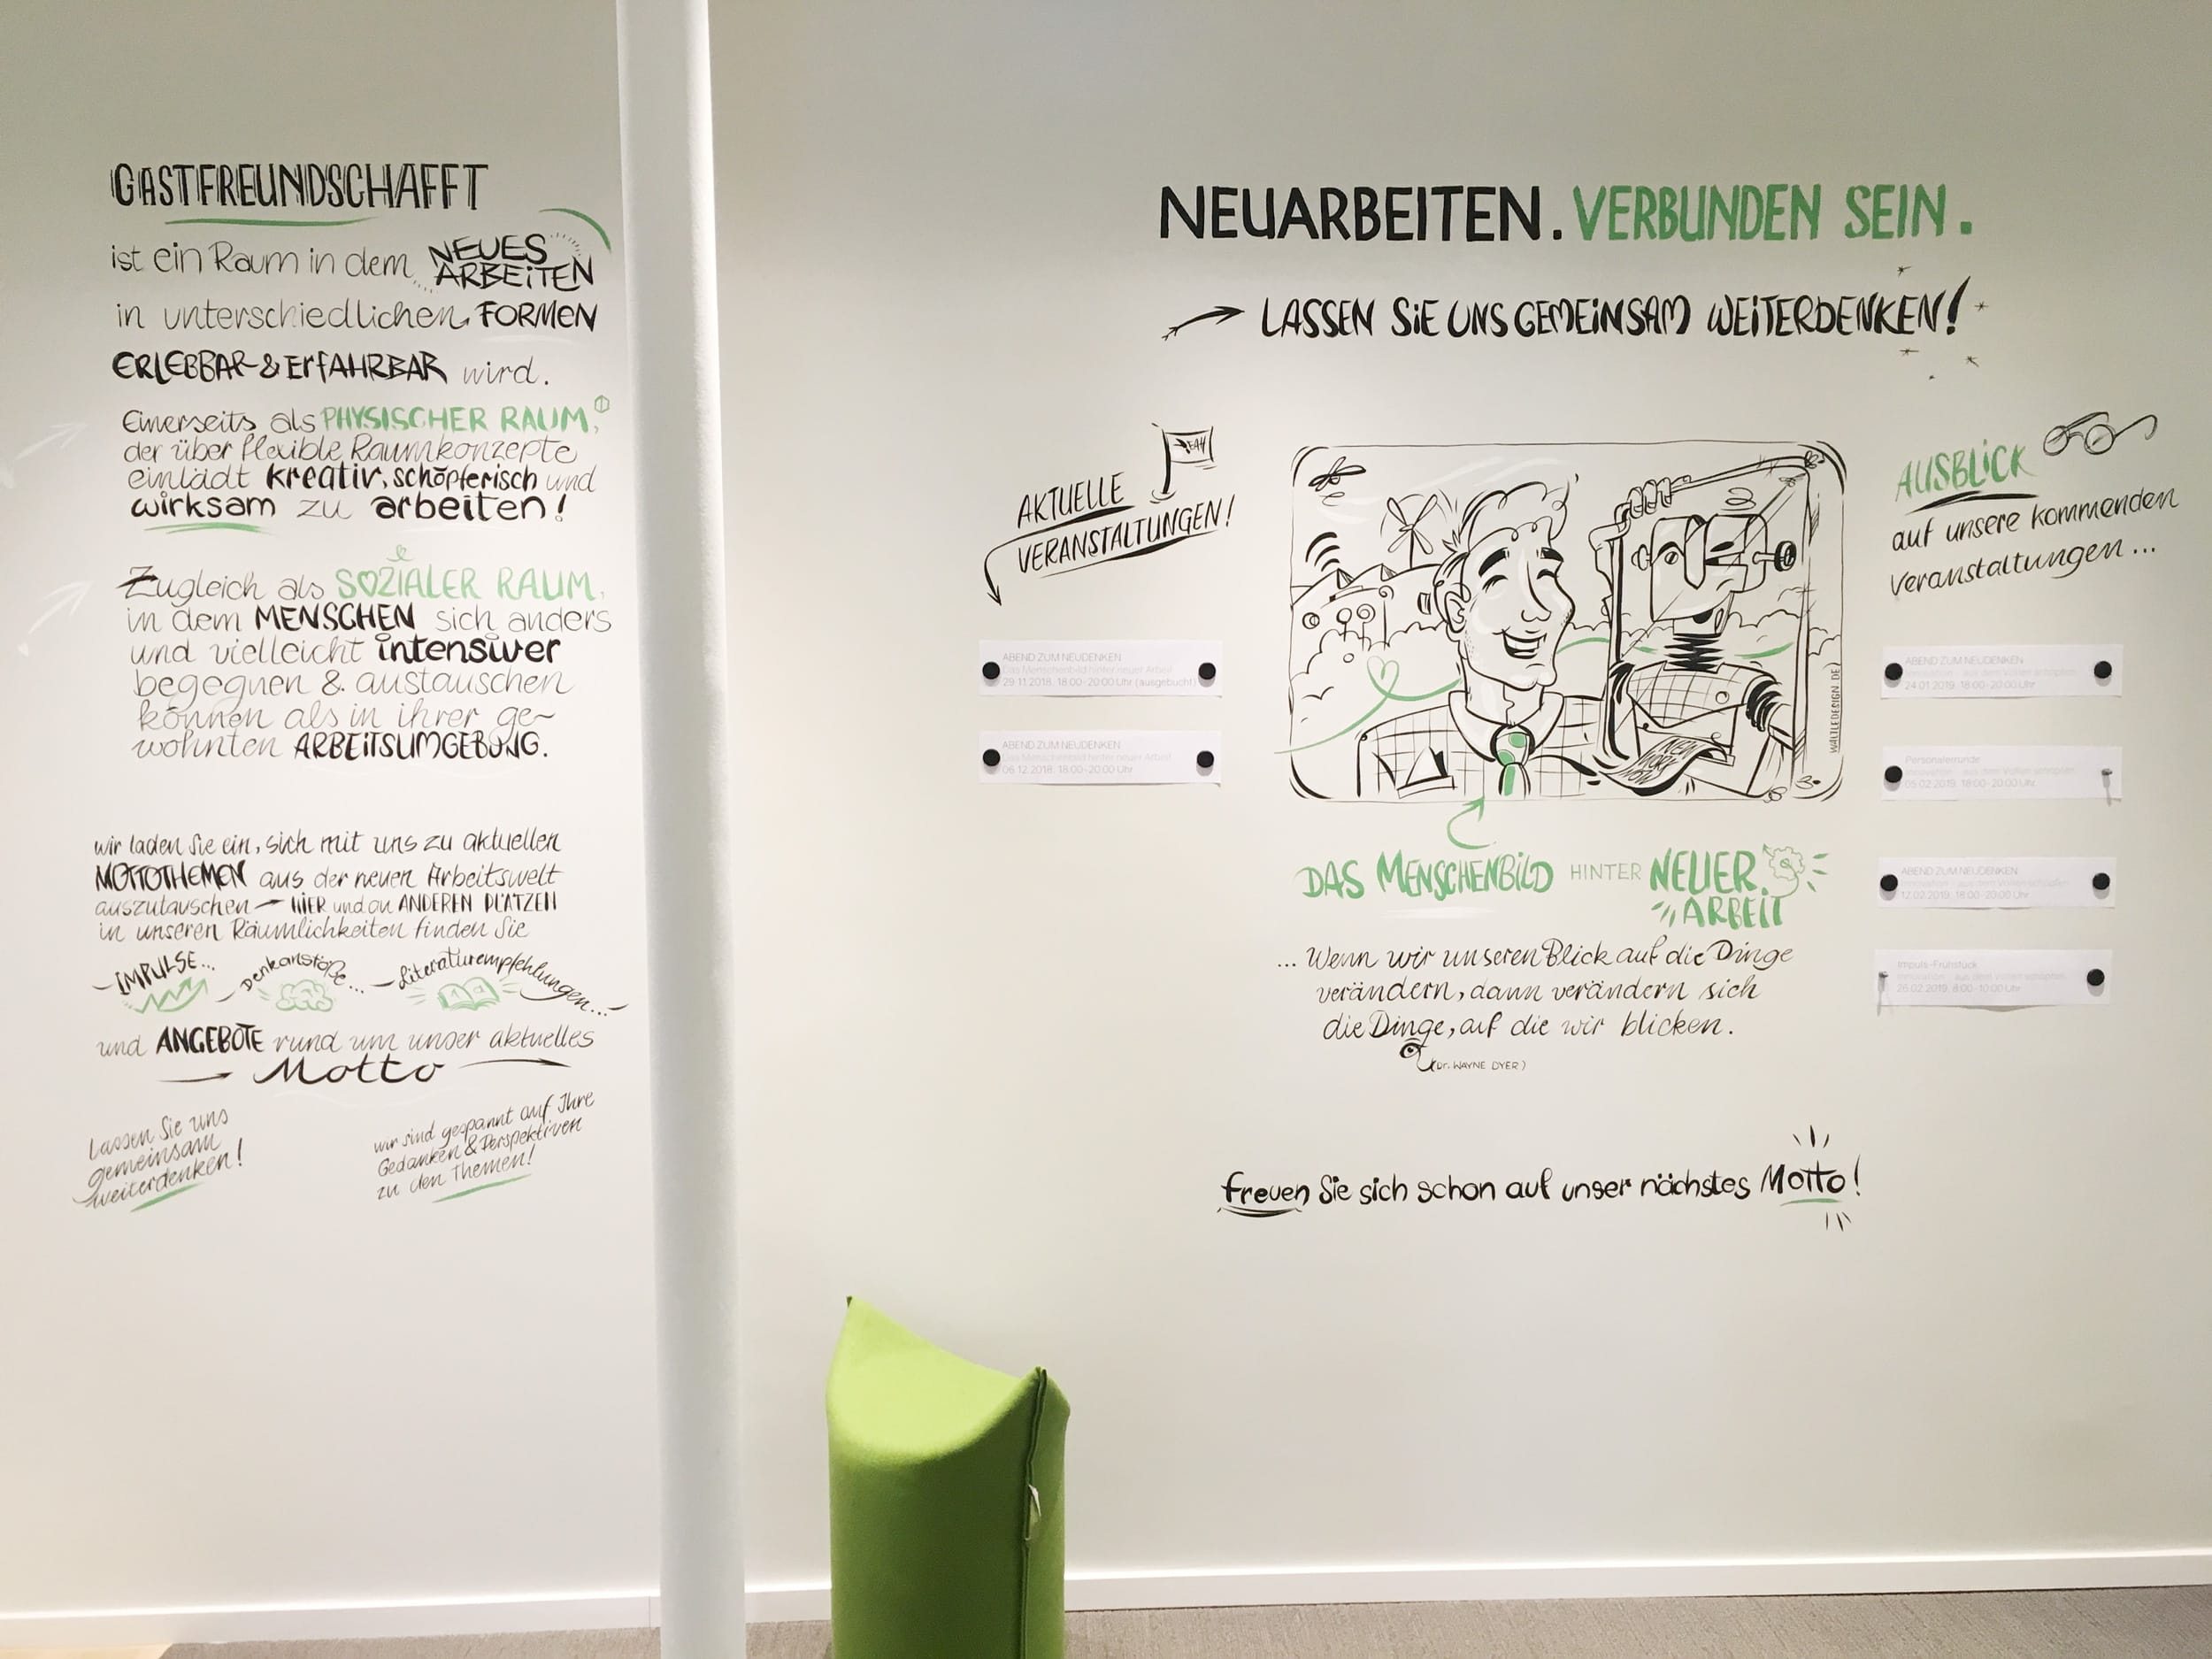 GASTFREUNDSCHAFFT
ist ein Raum in dem NEUES ARBEITEN
in unterschiedlichen FORMEN
ERLEBBAR & ERFAHRBAR wird.
Einerseits als PHYSISCHER RAUM,
der über flexible Raumkonzepte
einlädt kreativ, schöpferisch und
wirksam zu arbeiten!
Zugleich als SOZIALER RAUM,
in dem MENSCHEN sich anders
und vielleicht intensiver
begegnen & austauschen
können als in ihrer ge~
wohnten ARBEITSUMGEBUNG.
wir laden Sie ein, sich mit uns zu aktuellen
MOTTOTHEMEN aus der neuen Arbeitswelt
auszutauschen – HIER und an ANDEREN PLÄTZEN
in unseren Räumlichkeiten finden Sie
– IMPULSE... – Denkanstöße... – Literaturempfehlungen... –
und ANGEBOTE rund um unser aktuelles
Motto
Lassen Sie uns
gemeinsam
weiterdenken!
wir sind gespannt auf Ihre
Gedanken & Perspektiven
zu den Themen!
NEUARBEITEN. VERBUNDEN SEIN.
LASSEN SIE UNS GEMEINSAM WEITERDENKEN!
YEAH
AKTUELLE
VERANSTALTUNGEN!
ABEND ZUM NEUDENKEN
Das Menschenbild hinter neuer Arbeit
29.11.2018, 18:00-20:00 Uhr (ausgebucht)
ABEND ZUM NEUDENKEN
Das Menschenbild hinter neuer Arbeit
06.12.2018, 18:00-20:00 Uhr
WALTLEDESIGN.DE
DAS MENSCHENBILD HINTER NEUER
ARBEIT
... Wenn wir unseren Blick auf die Dinge
verändern, dann verändern sich
die Dinge, auf die wir blicken.
(Dr. WAYNE DYER)
freuen Sie sich schon auf unser nächstes Motto!
AUSBLICK
auf unsere kommenden
Veranstaltungen...
ABEND ZUM NEUDENKEN
24.01.2019, 18:00-20:00 Uhr
Personalerrunde
05.02.2019, 18:00-20:00 Uhr
ABEND ZUM NEUDENKEN
12.02.2019, 18:00-20:00 Uhr
Impuls-Frühstück
26.02.2019, 8:00-10:00 Uhr